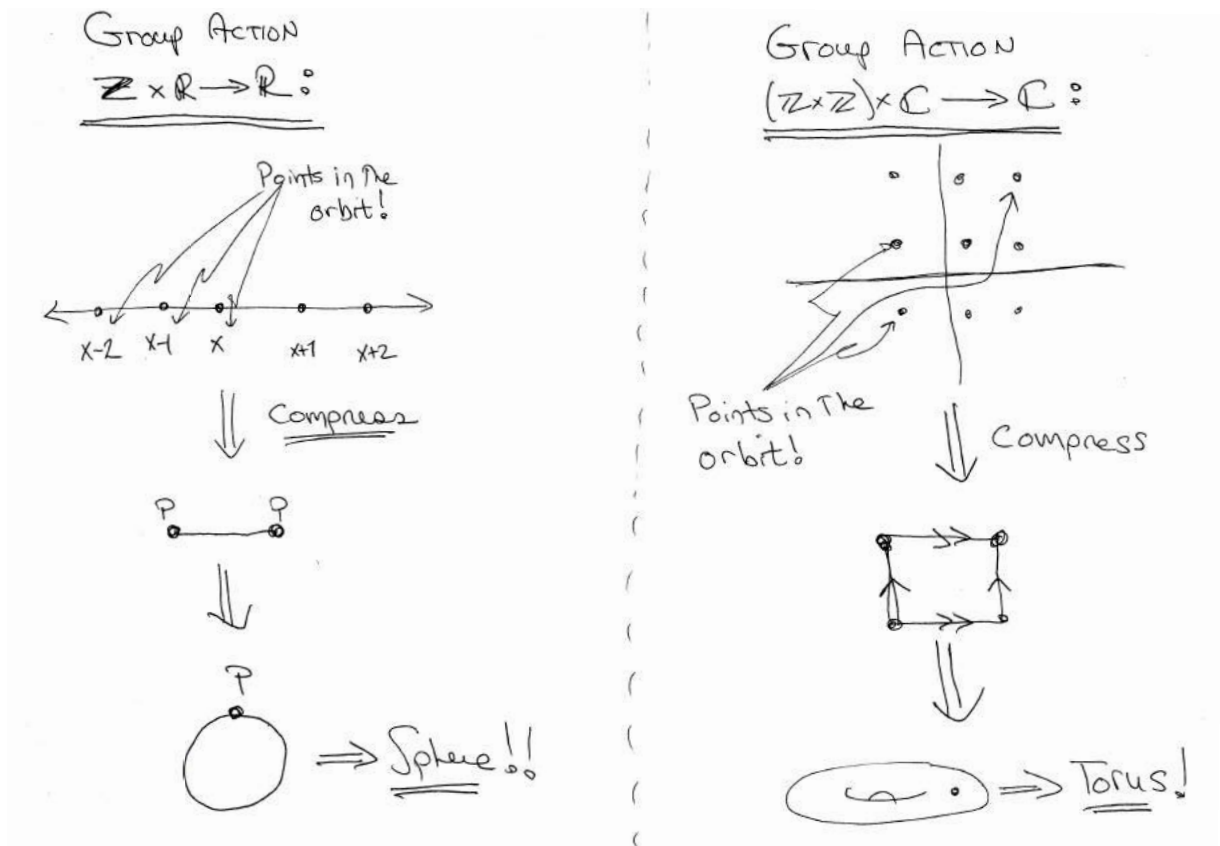 Group Action
ℤ × ℝ → ℝ:
Points in the
orbit!
x-2 x-1 x x+1 x+2
Compress
P P
P
⇒ Sphere!!
Group Action
(ℤ×ℤ)×ℂ → ℂ:
Points in The
orbit!
Compress
⇒ Torus!